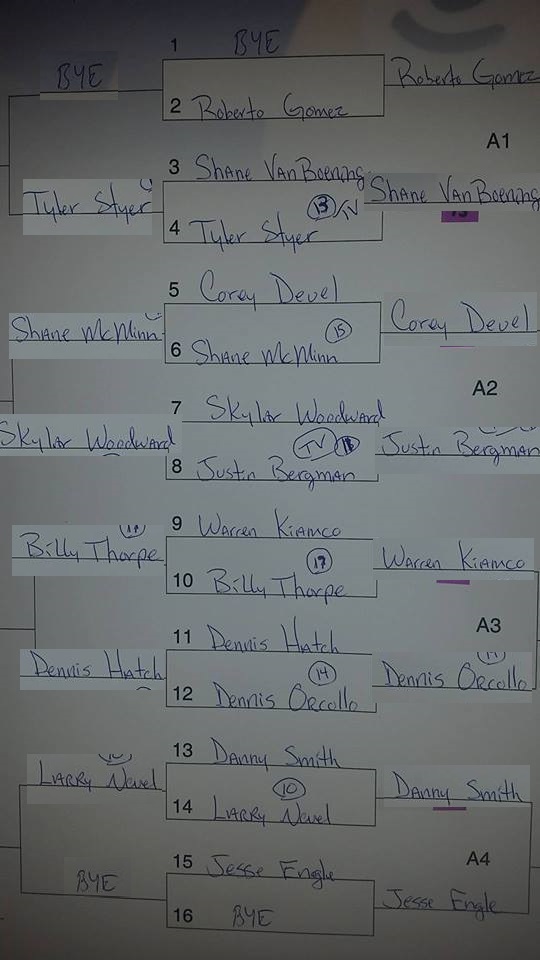 1 BYE
BYE
Roberto Gomez
2 Roberto Gomez
A1
3 Shane VanBoening
Tyler Styer
13/TV
Shane VanBoening
4 Tyler Styer
5 Corey Deuel
Shane McMinn
15
Corey Deuel
6 Shane McMinn
A2
7 Skylar Woodward
Skylar Woodward
TV
Justin Bergman
8 Justin Bergman
9 Warren Kiamco
Billy Thorpe
17
Warren Kiamco
10 Billy Thorpe
A3
11 Dennis Hatch
Dennis Hatch
14
Dennis Orcollo
12 Dennis Orcollo
13 Danny Smith
Larry Nevel
10
Danny Smith
14 Larry Nevel
A4
15 Jesse Engle
BYE
Jesse Engle
16 BYE